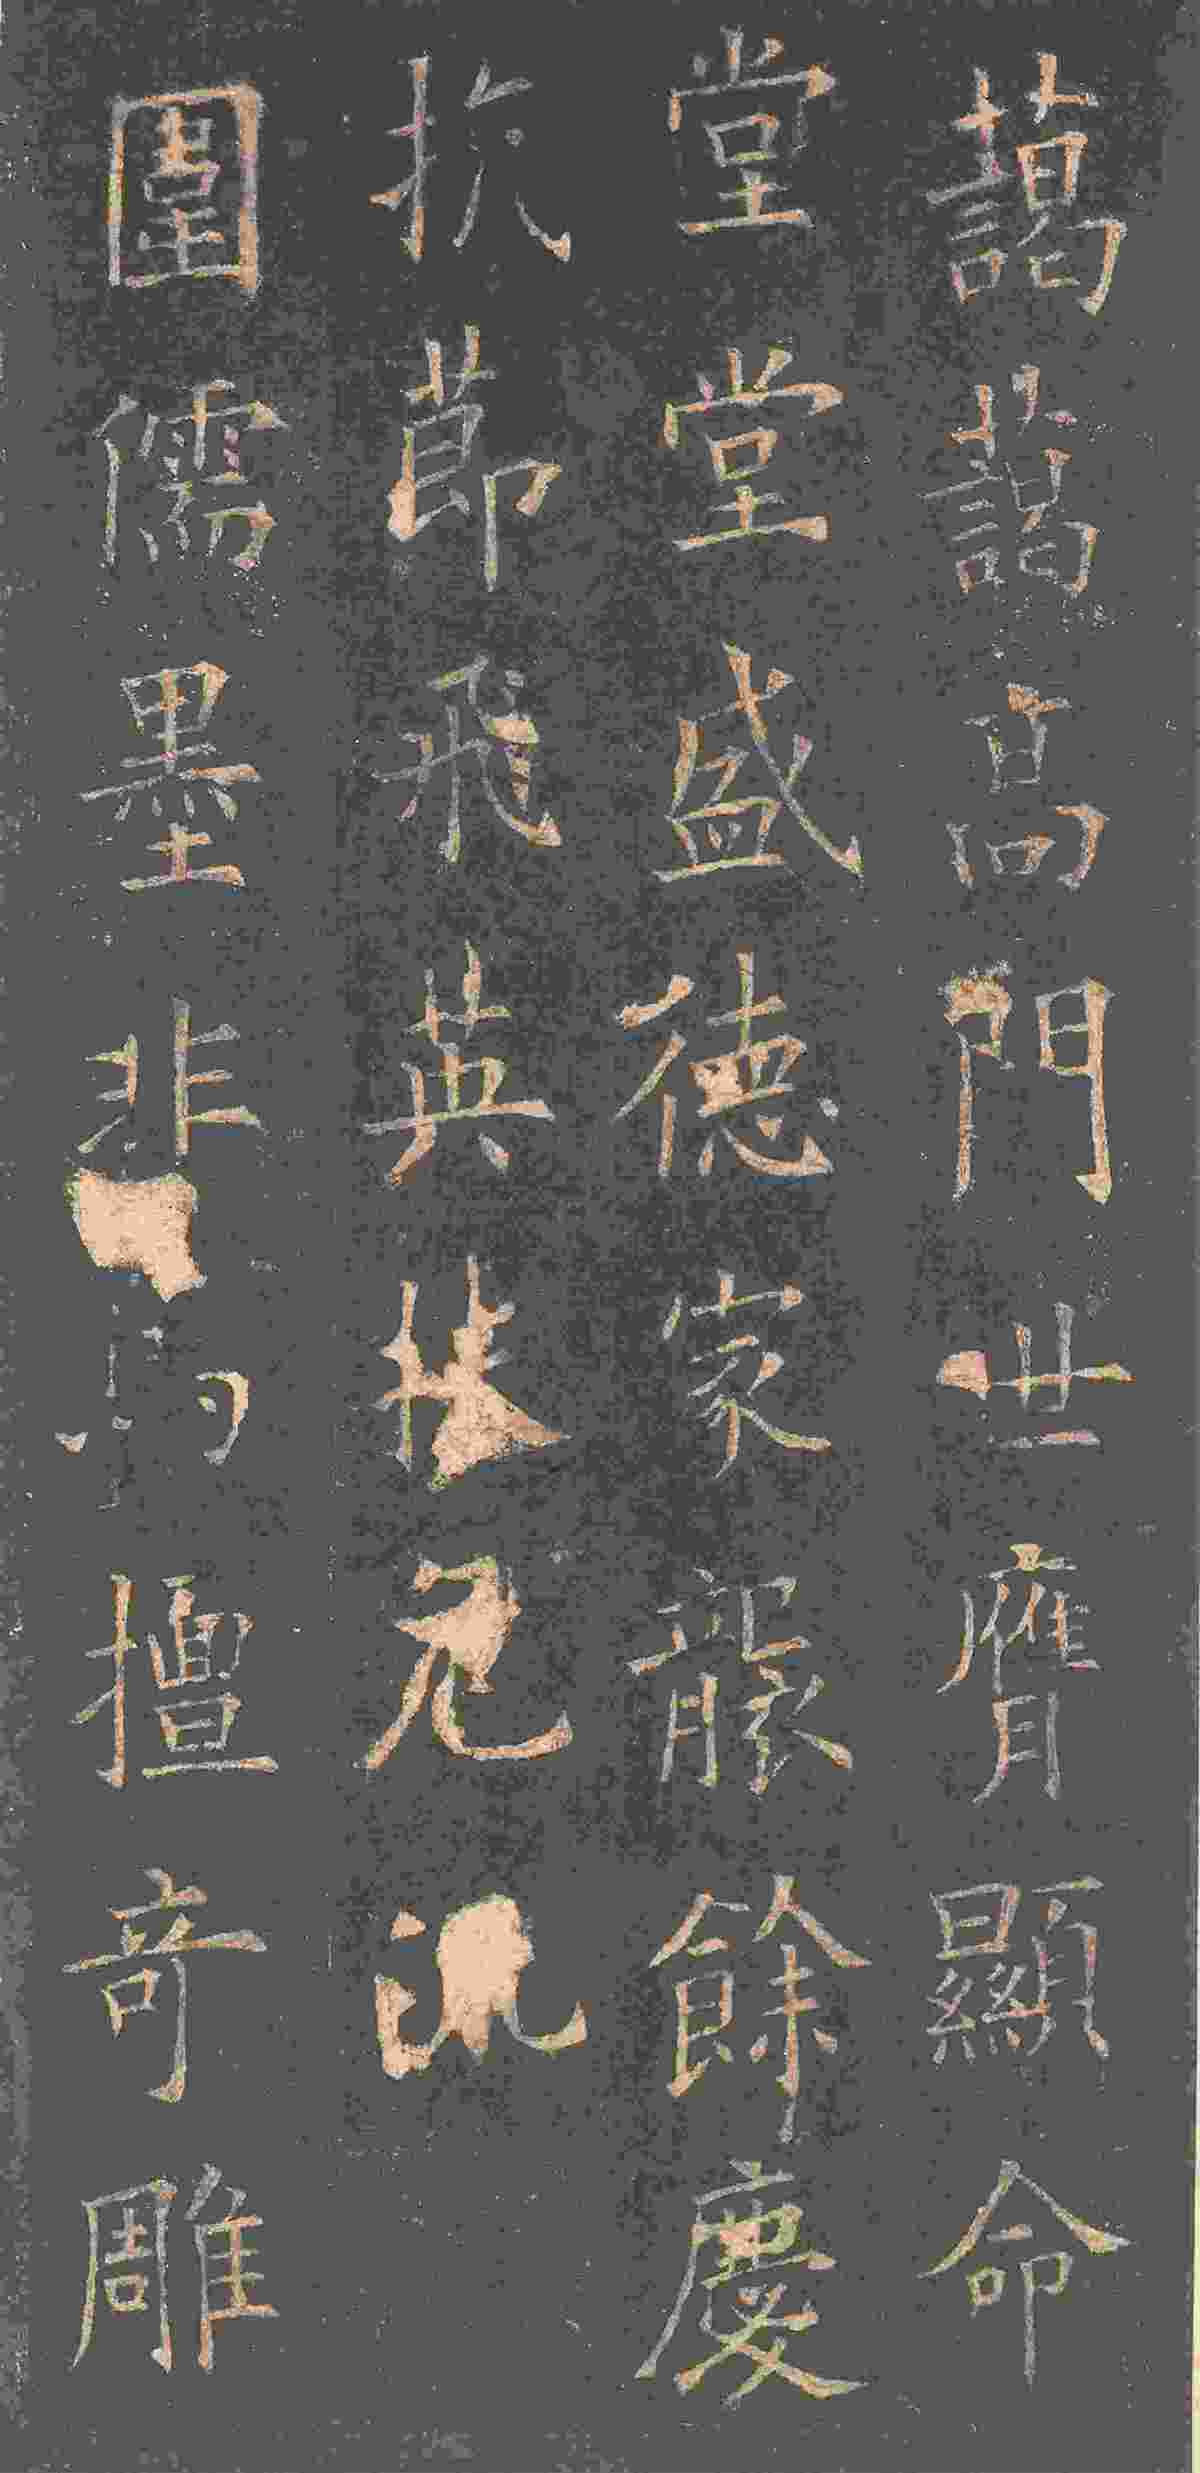 藹藹高門世膺顯命
堂堂盛德家襲餘慶
抗莭飛英
儒墨擅奇雕